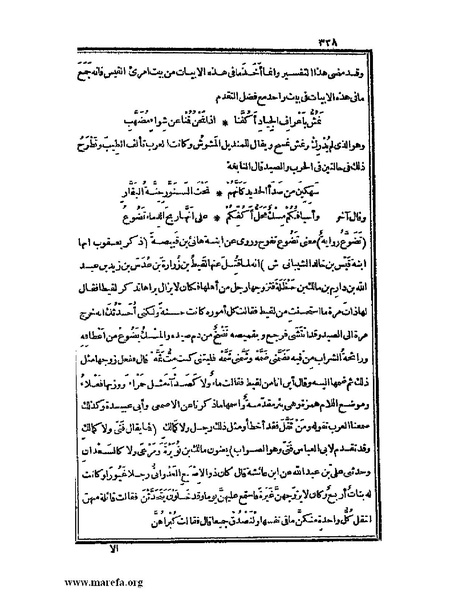 ٣٢٨
وقد مضى هذا التفسير وانما أخذ مافى هذه الابيات من بيت امرئ القيس فانه جمع
مافى هذه الابيات فى بيت واحد مع فضل التقدم
نمش بأعراف الجياد أكفنا * اذا نحن قمنا عن شواء مضهب
وهو الذى لم يدرك ونمش نمسح ويقال للمنديل المشوش وكانت العرب تألف الطيب وتطرح
ذلك فى حالتين فى الحرب والصيد قال النابغة
سهكين من صدأ الحديد كأنهم * تحت السنور جنة البقار
وقال آخر وأسيافكم مسك محل أكفكم * على أنها ريح الدماء تضوع
(تضوع رواية) معنى تضوع تفوح وروى عن ابنة هانئ بن قبيصة (ذكر يعقوب انها
ابنة قيس بن خالد الشيبانى ش) انه لما قتل عنها لقيط بن زرارة بن عدس بن زيد بن عبد
الله بن دارم بن مالك بن حنظلة فتزوجها رجل من أهلها فكان لا يزال يراها تذكر لقيطا فقال
لها ذات مرة ما استحسنت من لقيط فقالت كل أموره كانت حسنة ولكنى أحدثك انه خرج
مرة الى الصيد وقد انتشى فرجع وبقميصه نضخ من دم صيده والمسك يضوع من أعطافه
ورائحة الشراب من فيه فضمنى ضمة وشمنى شمة فليتنى كنت مت ثمة قال ففعل زوجها مثل
ذلك ثم ضمها اليه وقال أين انا من لقيط فقالت ماء ولا كصداء مثل حمراء ووزنها فعلاء
وموضع اللام همزة وهى بئر مقدمة واسمها ما ذكرنا عن الاصمعى وأبى عبيدة وكذلك
سمعنا العرب تقوله ومن ثقل فقد أخطأ ومثل ذلك رجل ولا كمالك (هنا يقال فتى ولا كمالك
وقد تقدم لابى العباس فتى وهو الصواب) يعنون مالك بن نويرة ومرعى ولا كالسعدان
وحدثنى على بن عبد الله عن ابن عائشة قال كان ذو الاصبع العدوانى رجلا غيورا وكانت
له بنات أربع وكان لا يزوجهن غيرة فاستمع عليهن يوما وقد خلون يتحدثن فقالت قائلة منهن
لتقل كل واحدة منكن مافى نفسها ولنصدق جميعا قال فقالت كبراهن
الا
www.marefa.org